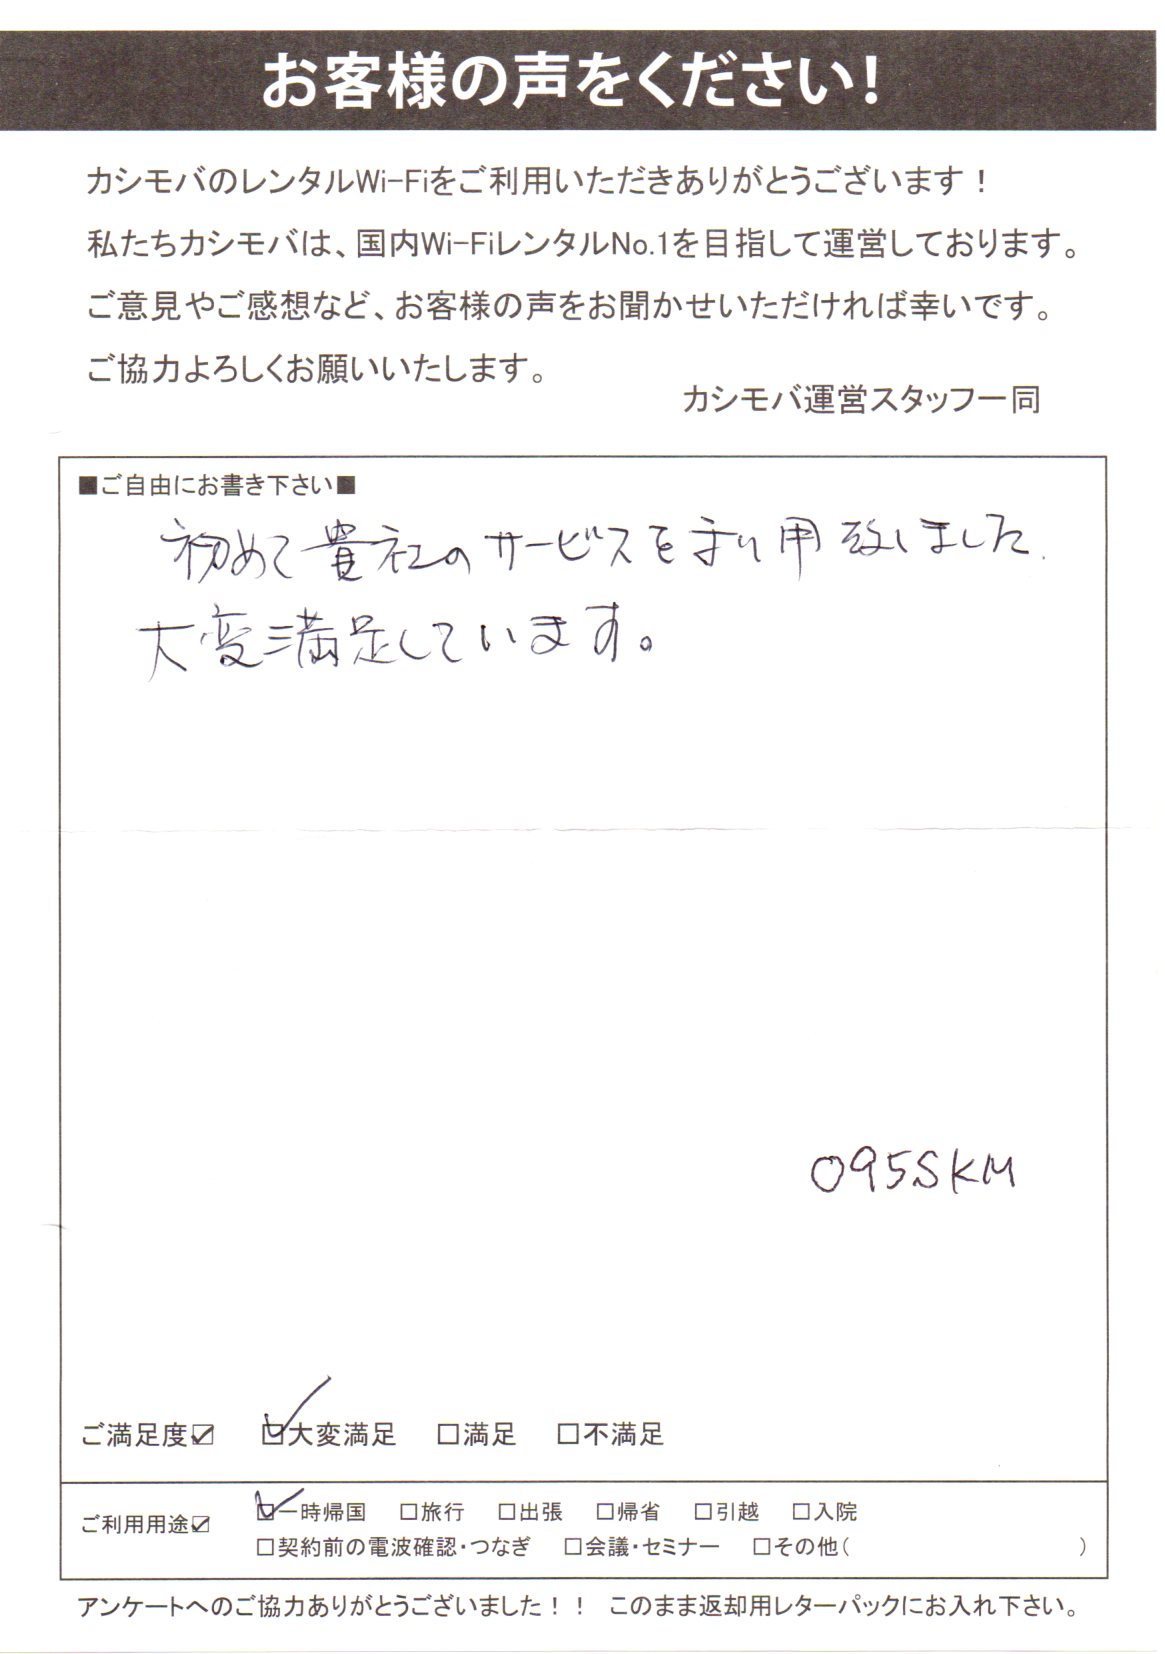 お客様の声をください!
カシモバのレンタルWi-Fiをご利用いただきありがとうございます！
私たちカシモバは、国内Wi-FiレンタルNo.1を目指して運営しております。
ご意見やご感想など、お客様の声をお聞かせいただければ幸いです。
ご協力よろしくお願いいたします。
カシモバ運営スタッフ一同
■ご自由にお書き下さい■
初めて貴社のサービスを利用致しました.
大変満足しています。
095SKM
ご満足度☑ ☑大変満足 □満足 □不満足
ご利用用途☑ ☑一時帰国 □旅行 □出張 □帰省 □引越 □入院
□契約前の電波確認・つなぎ □会議・セミナー □その他( )
アンケートへのご協力ありがとうございました！！ このまま返却用レターパックにお入れ下さい。